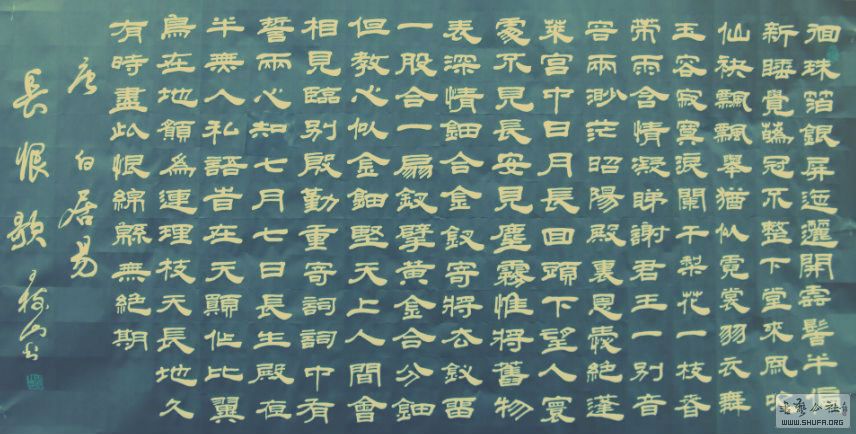 徊珠箔銀屏迤邐開雲髻半偏
新睡覺蘤冠不整下堂來風吹
仙袂飄飄舉猶似霓裳羽衣舞
玉容寂寞淚闌干梨花一枝春
帶雨含情凝睇謝君王一別音
容兩渺茫昭陽殿裏恩愛絕蓬
萊宮中日月長回頭下望人寰
處不見長安見塵霧惟將舊物
表深情鈿合金釵寄將去釵留
一股合一扇釵擘黃金合分鈿
但教心似金鈿堅天上人間會
相見臨別殷勤重寄詞詞中有
誓兩心知七月七日長生殿夜
半無人私語旹在天願作比翼
鳥在地願為連理枝天長地久
有時盡此恨綿緜無絕期
唐 白居易
長恨歌
書藝公社
WWW.SHUFA.ORG